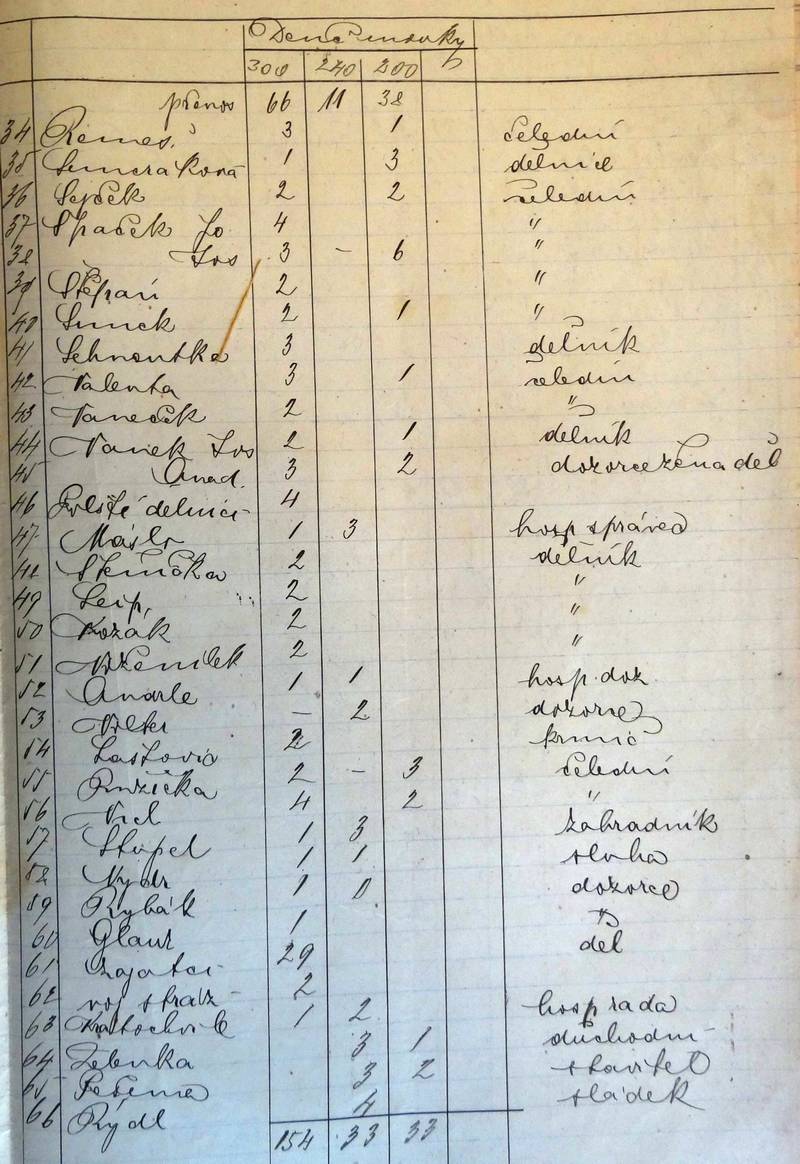 Denní
300 240 200
přenos 66 11 38
34 Remeš 3 1 čeledín
35 Semeráková 1 3 dělnice
36 Sejček 2 2 čeledín
37 Spaček Jo 4 "
38 Jos 3 – 6 "
39 Štěpán 2 "
40 Simek 2 1 "
41 Sehnoutka 3 dělník
42 Valenta 3 1 čeledín
43 Vaneček 2 "
44 Vanek Jos 2 1 dělník
45 3 2 dozorce žena děl
46 dělníci 4
47 Máslo 1 3 hosp správce
48 2 dělník
49 2 "
50 Kozák 2 "
51 2
52 Andrle 1 1 hosp. doz
53 Volter – 2 dozorce
54 Lastovic 2 krmič
55 Ružička 2 – 3 čeledín
56 4 2 "
57 Stopel 1 3 zahradník
58 Vydr 1 1 sluha
59 Rybák 1 0 dozorce
60 Glant 1 "
61 Zajatci 29 děl
62 voj stráž 2
63 Kratochvil 1 2 hosp rada
64 Zelenka 3 1 důchodní
65 3 2 stavitel
66 Rýdl 4 sládek
154 33 33